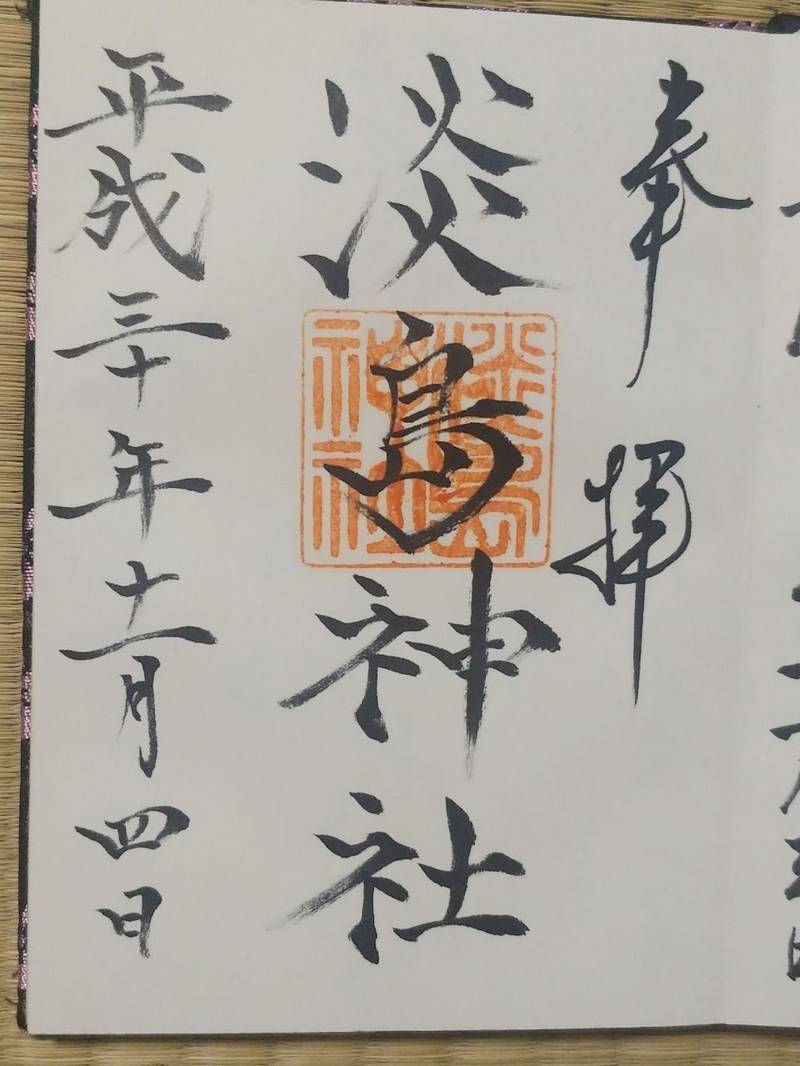 奉拝
淡島神社
淡島神社
平成三十年十一月四日